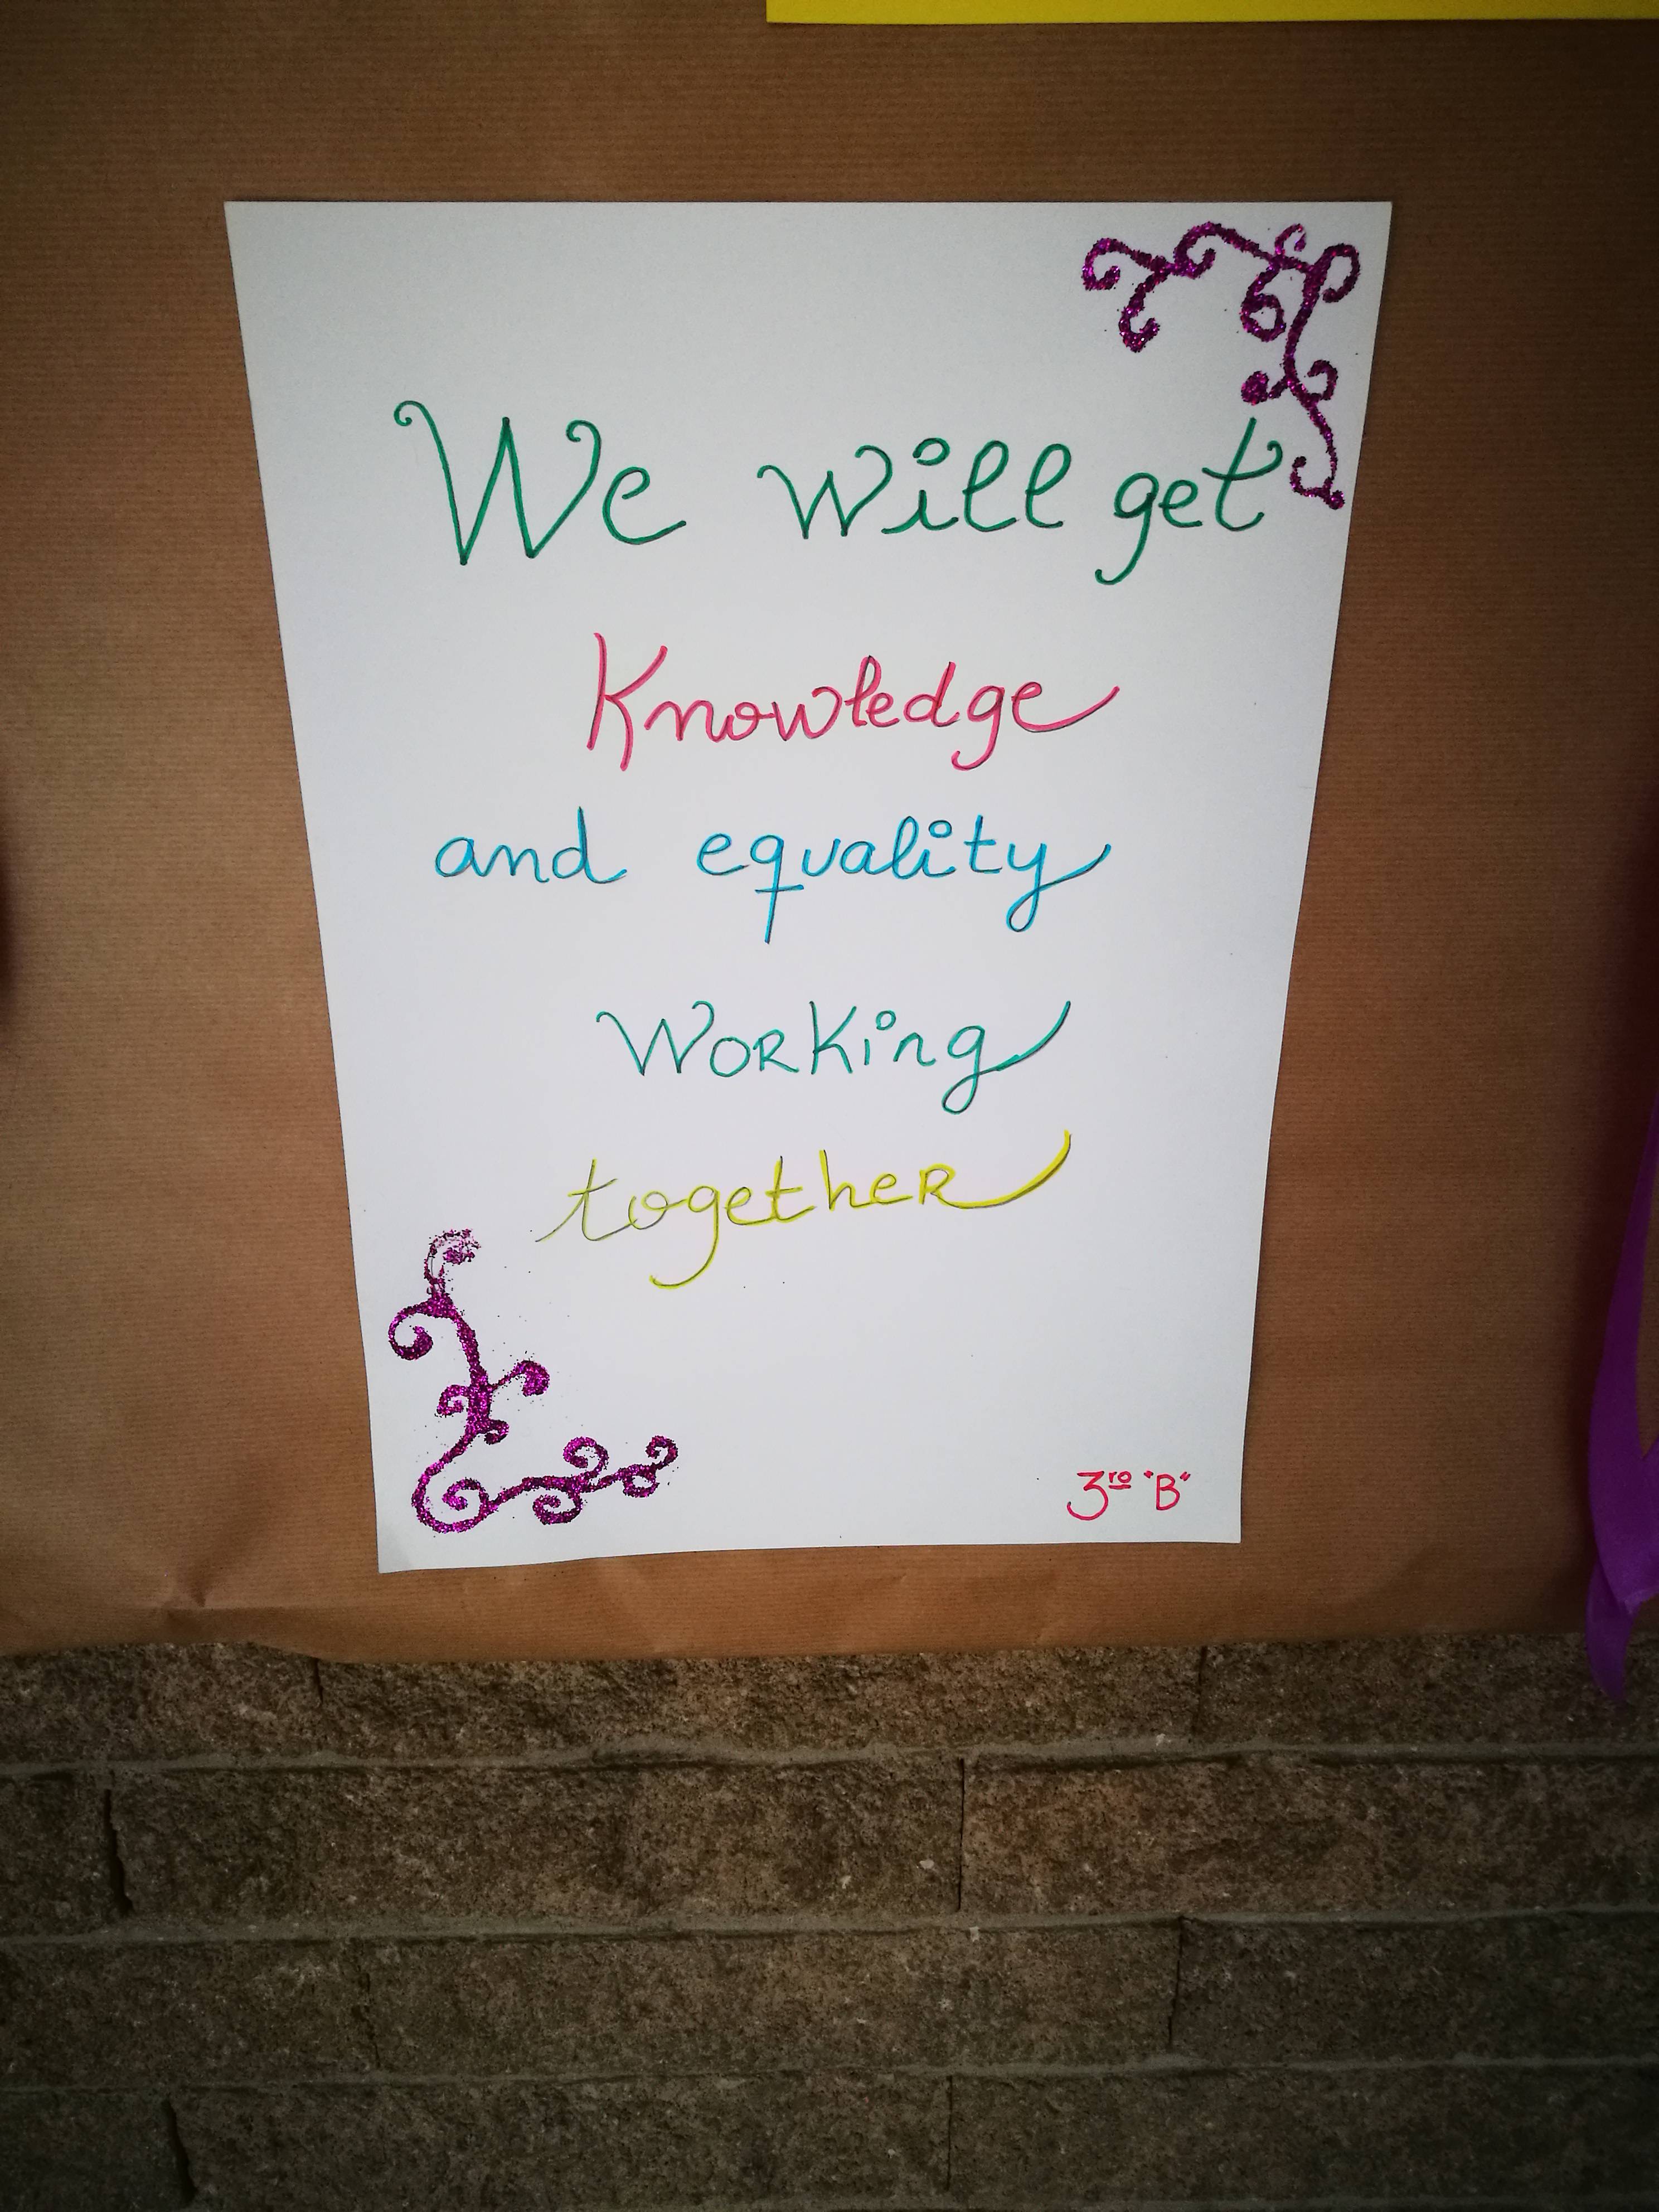 We will get
Knowledge
and equality
Working
together
3ro "B"